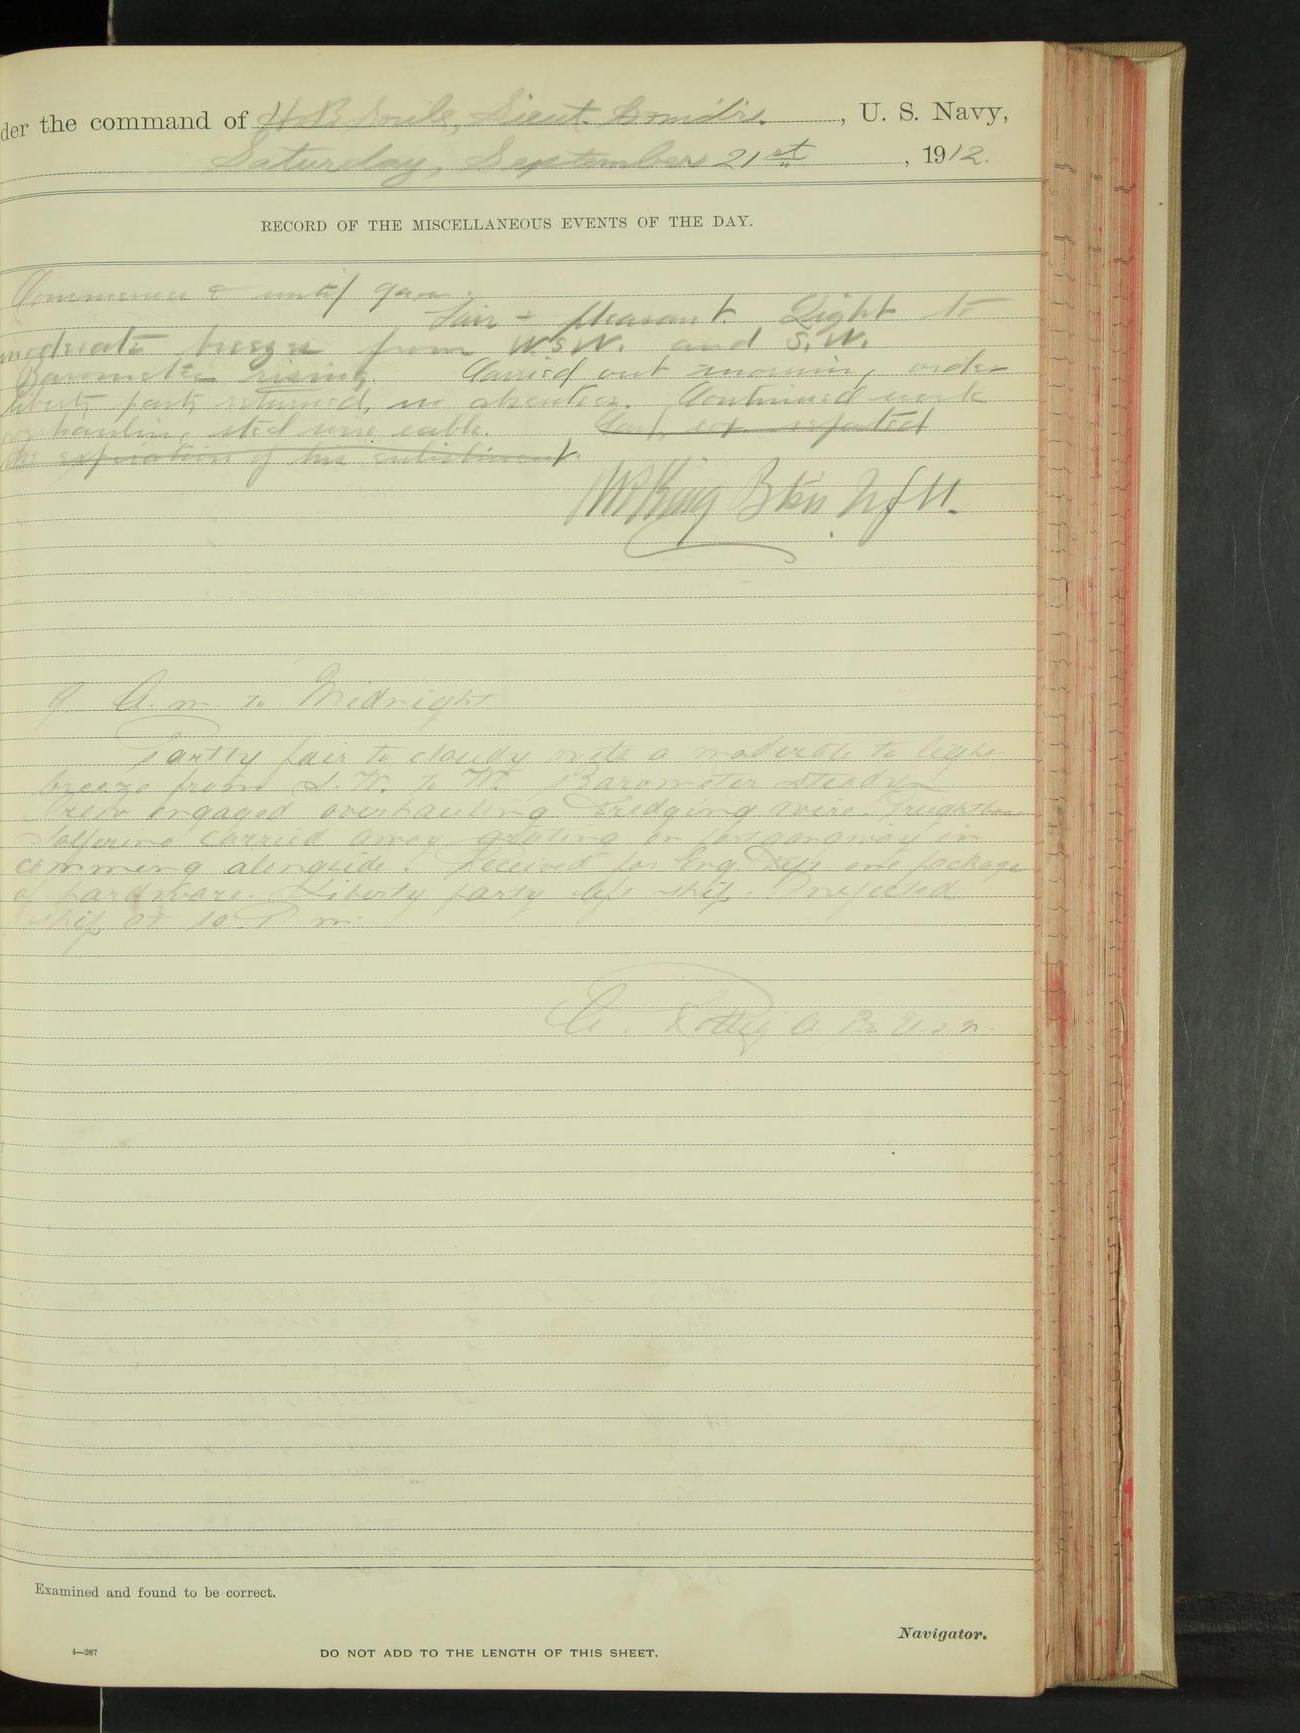 der the command of H. B. Soule, Lieut. Comd'r., U. S. Navy,
Saturday, September 21st, 1912.
RECORD OF THE MISCELLANEOUS EVENTS OF THE DAY.
Commence & until 9 am.
Fair & pleasant. Light to
moderate breeze from W.S.W. and S.W.
Barometer rising. Carried out morning order
liberty party returned, no absentees. Continued work
overhauling steel wire cable. reported
the expiration of his enlistment.
King Btsn U.S.N.
9 A. m. to Midnight
Partly fair to cloudy with a moderate to light
breeze from S.W. to W. Barometer steady.
Crew engaged overhauling dredging wire.
carried away grating on port gangway in
comming alongside. Received for Eng. Dep. one package
of hardware. Liberty party left ship. Inspected
ship at 10 P. m.
A. U.S.N.
Examined and found to be correct.
Navigator.
4—267
DO NOT ADD TO THE LENGTH OF THIS SHEET.